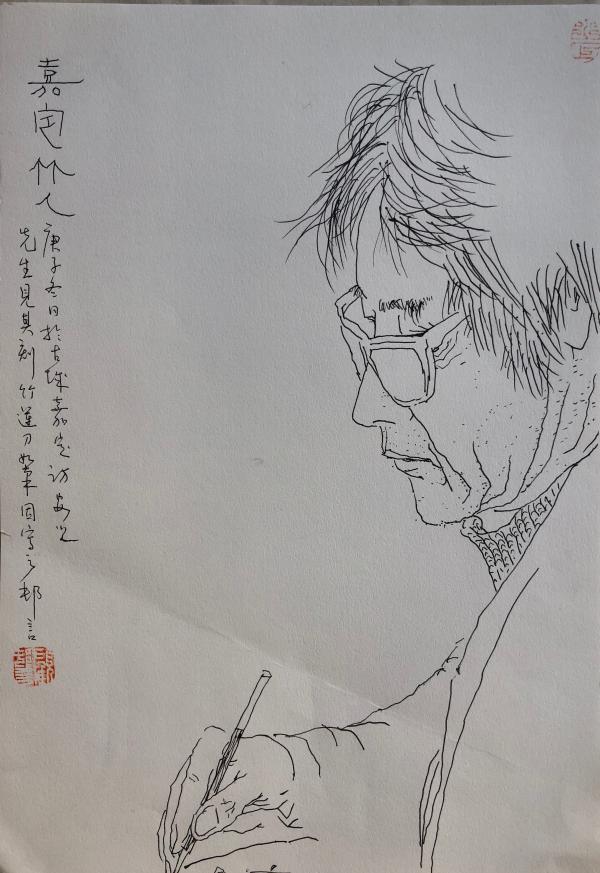 嘉定竹人
庚子冬日於古城嘉定访安之
先生見其刻竹運刀如筆因寫之邨言